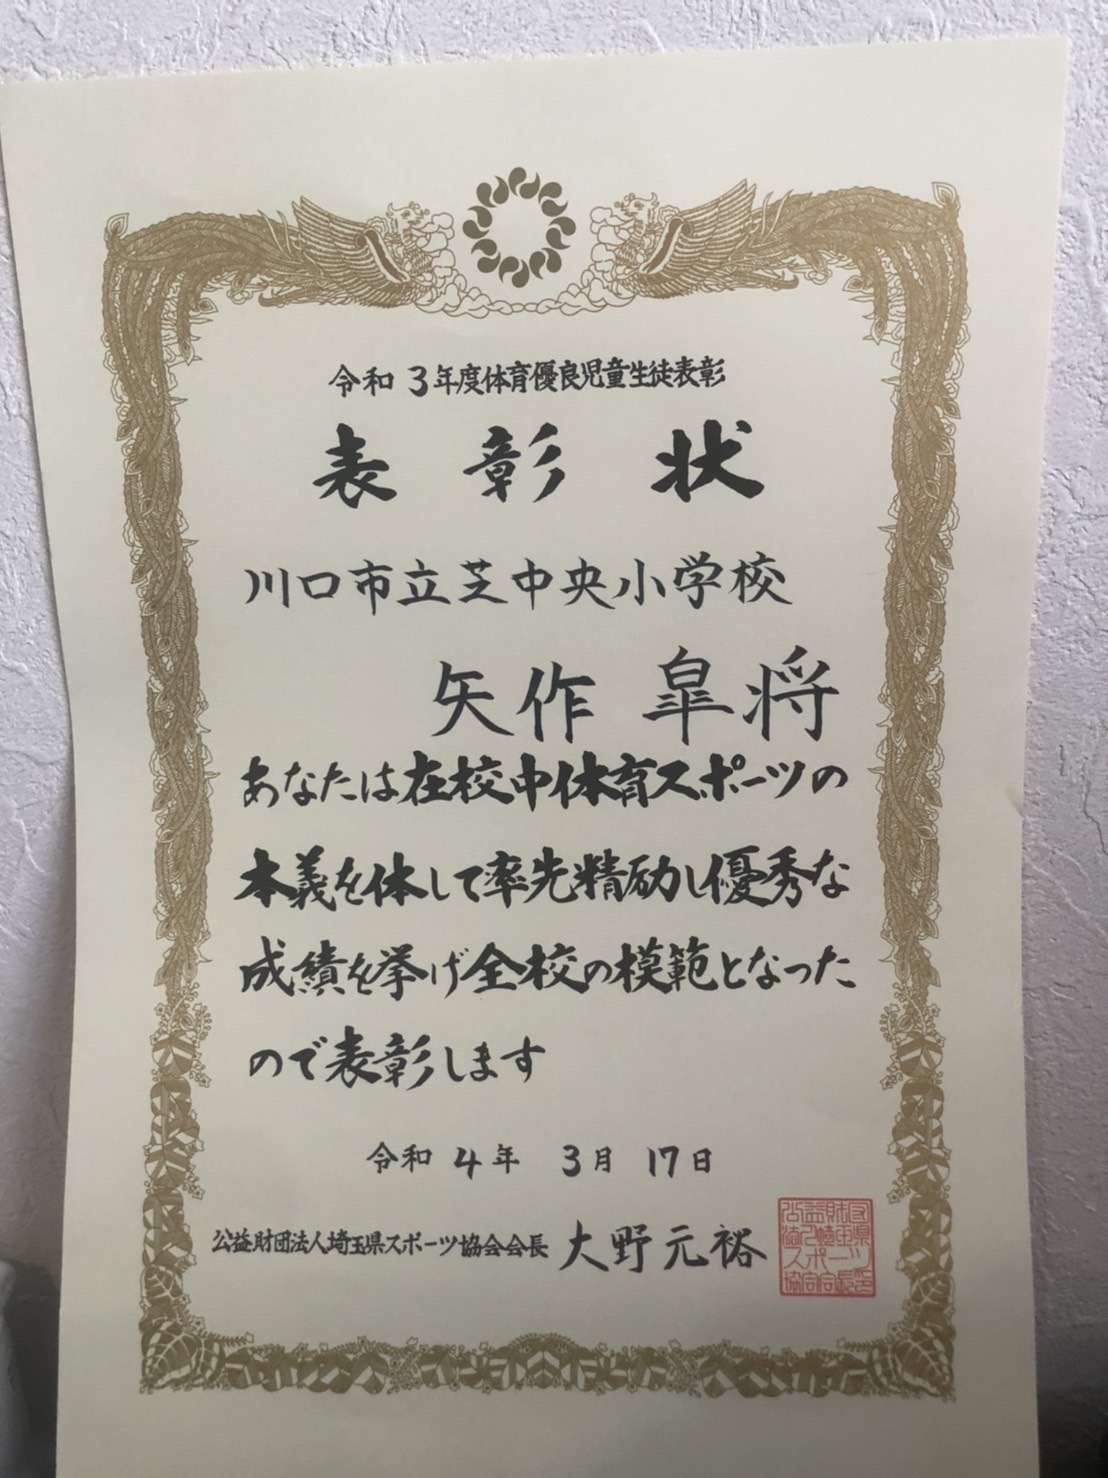 令和3年度体育優良児童生徒表彰
表彰状
川口市立芝中央小学校
矢作 皐将
あなたは在校中体育スポーツの
本義を体して率先精励し優秀な
成績を挙げ全校の模範となった
ので表彰します
令和4年 3月 17日
公益財団法人埼玉県スポーツ協会会長 大野元裕